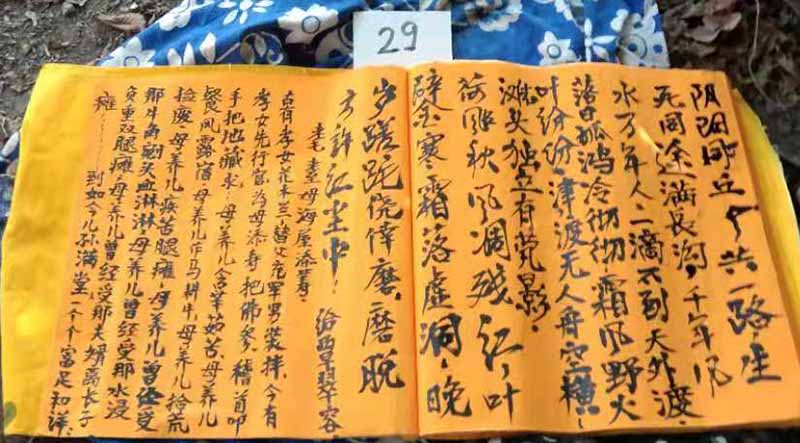 29
阴阳丘今共一路,生
死同途满长沟,千年风
水万年人二滴不到天外渡,
落日孤鸿冷彻彻霜风野火
叶纷纷,津渡无人舟空横,
滩头独立有茕影.
荷涨秋风凋残红,叶
碎金寒霜落虚洞,晚
岁蹉跎侥倖磨,磨脱
方許红尘中! 给翠容.
耄耋母海屋添寿:
古有孝女花木兰替父充军男装拌,今有
孝女先行官为母添寿把佛参,稽首叩
手把地藏求,母养儿含辛茹苦,母养儿
餐风露宿母养儿作马耕牛,母养儿拾荒
捡废,母养儿疾苦腿瘫,母养儿曾经受
那牛角剜头血淋淋母养儿曾经受那水浸
负重双腿瘫,母养儿曾经受那夫婿离子
瘫……到如今儿孙满堂一个个富足和祥.